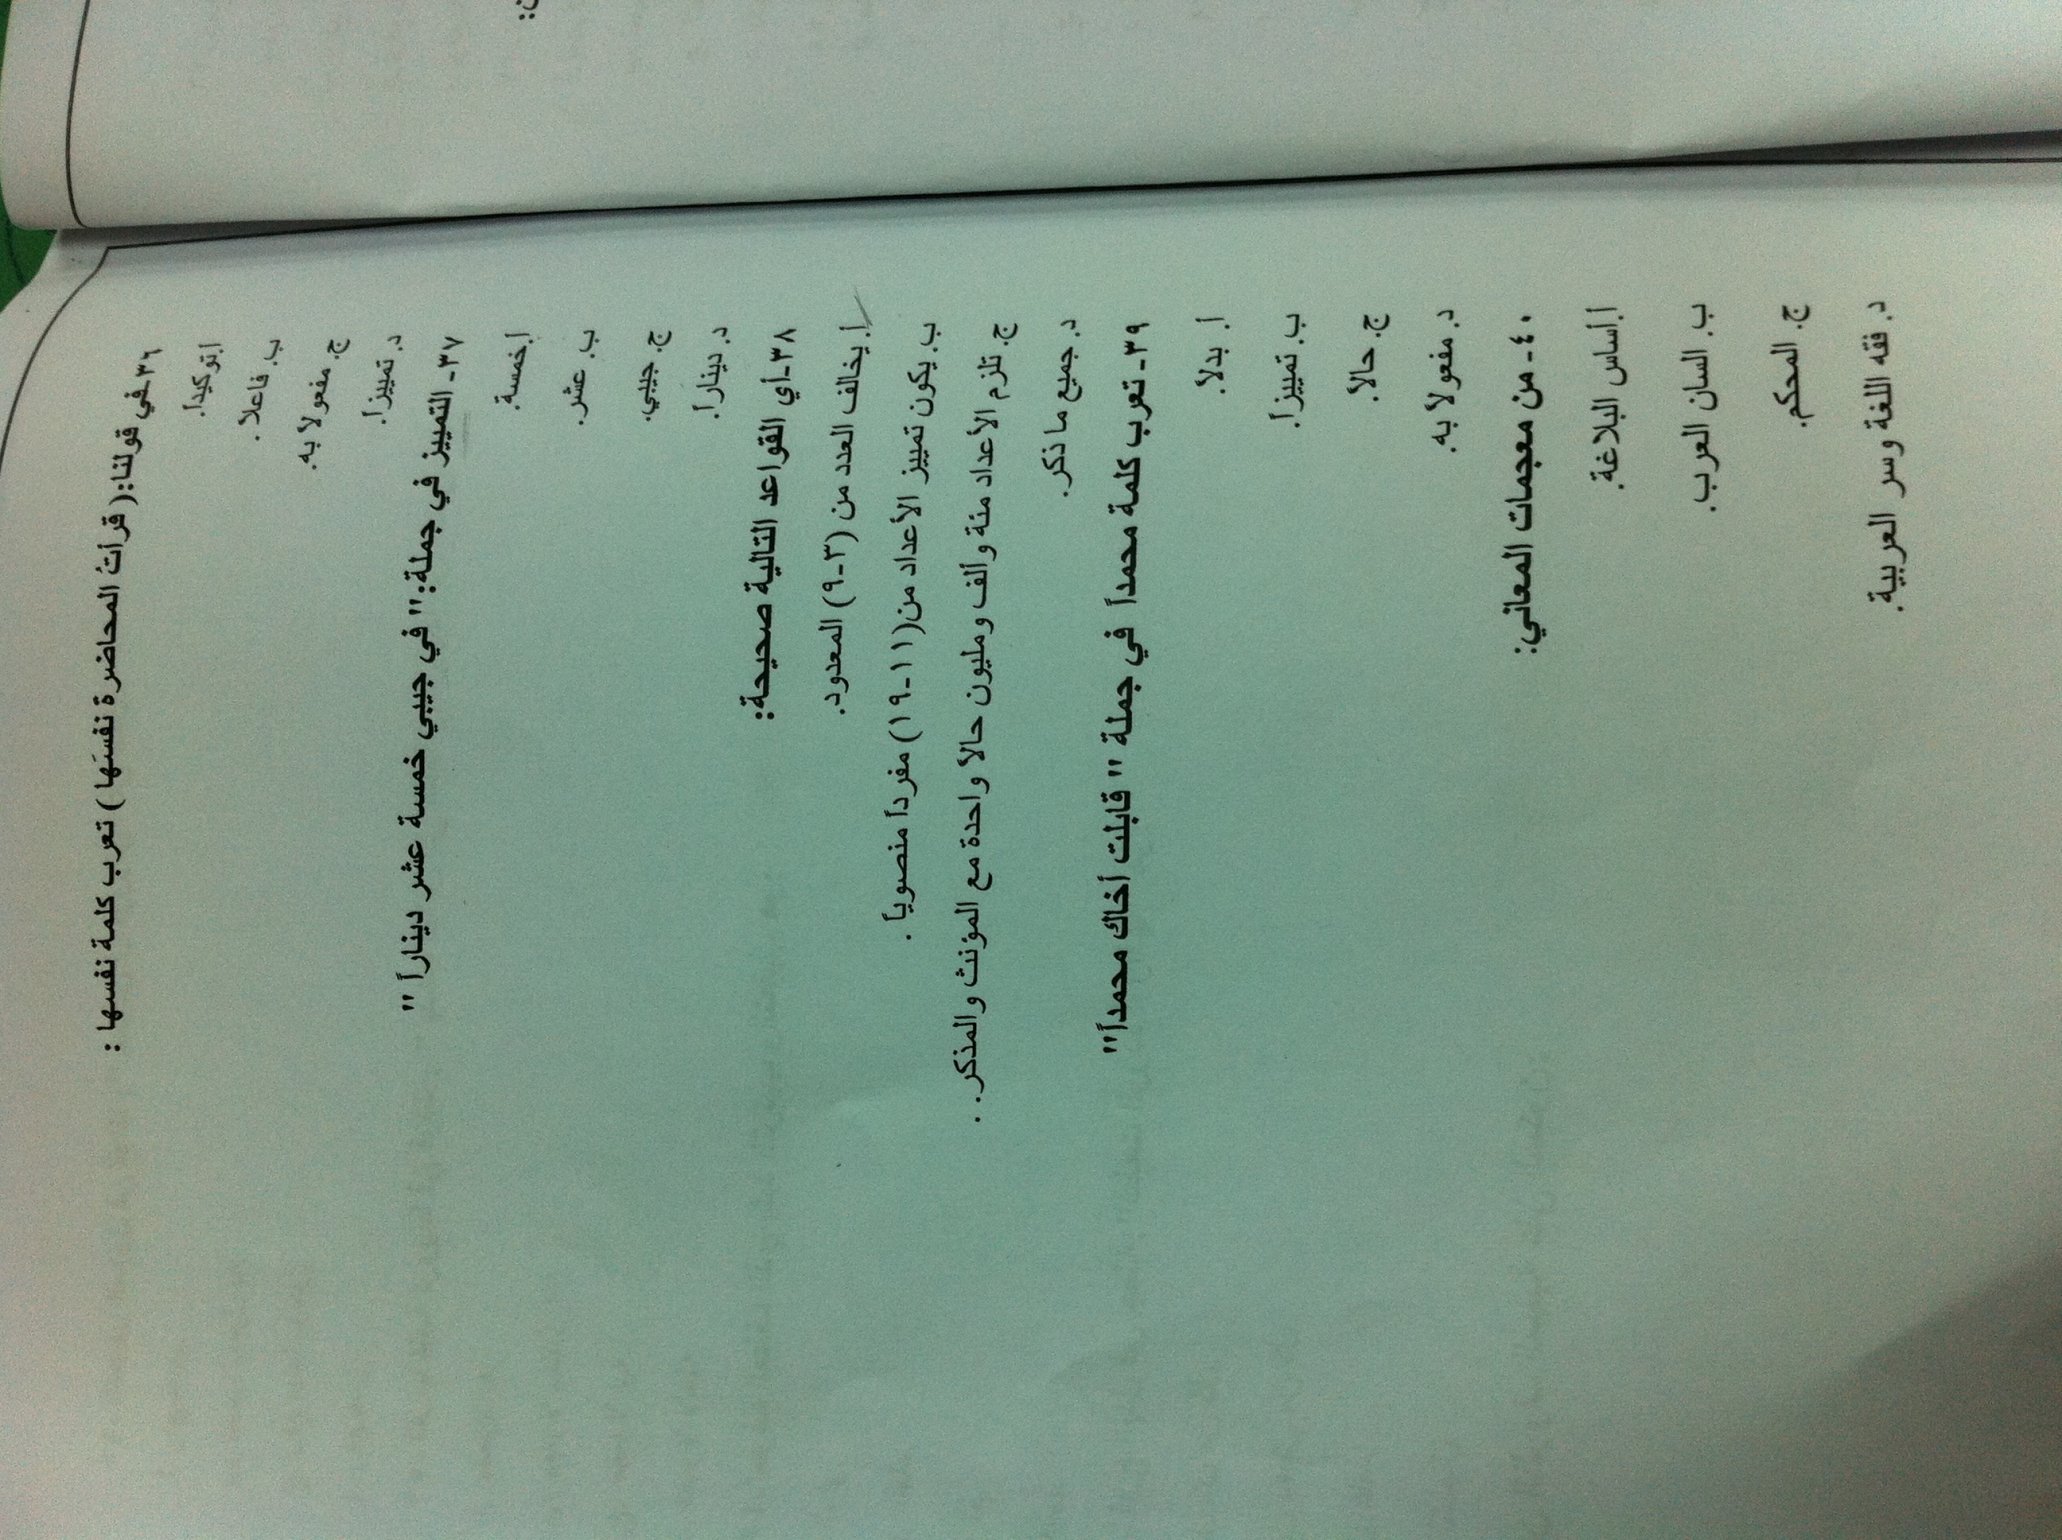 ٣٦-في قولنا:( قرأتُ المحاضرة نفسَها ) تعرب كلمة نفسها :
أ.توكيداً.
ب. فاعلاً .
ج. مفعولاً به.
د. تمييزاً.
٣٧- التمييز في جملة:" في جيبي خمسة عشر ديناراً "
أ.خمسة.
ب. عشر.
ج. جيبي.
د. ديناراً.
٣٨-أي القواعد التالية صحيحة:
أ. يخالف العدد من (٣-٩) المعدود.
ب. يكون تمييز الأعداد من(١١-١٩) مفرداً منصوباً .
ج. تلزم الأعداد مئة وألف ومليون حالاً واحدة مع المؤنث والمذكر. .
د. جميع ما ذكر.
٣٩- تعرب كلمة محمداً في جملة " قابلت أخاك محمداً"
أ. بدلاً.
ب. تمييزاً.
ج. حالاً.
د. مفعولاً به.
٤٠- من معجمات المعاني:
أ.أساس البلاغة.
ب. السان العرب.
ج. المحكم.
د. فقه اللغة وسر العربية.